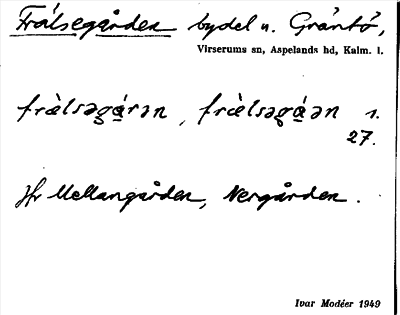 Frälsegården bydel u. Gränö,
Virserums sn, Aspelands hd, Kalm. l.
frälsəgárən, frälsəgáən 1.
27.
Jfr Mellangården, Nergården.
Ivar Modéer 1949